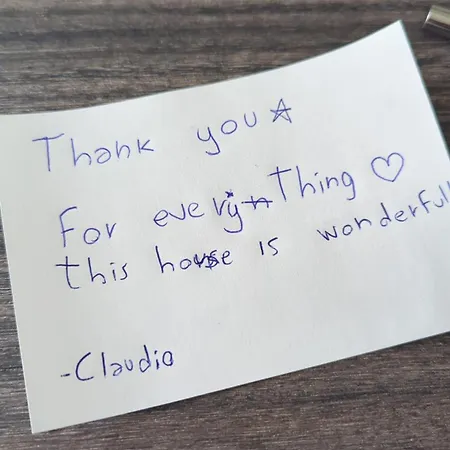 Thank you ☆
For everything ♡
this house is wonderfull
-Claudio